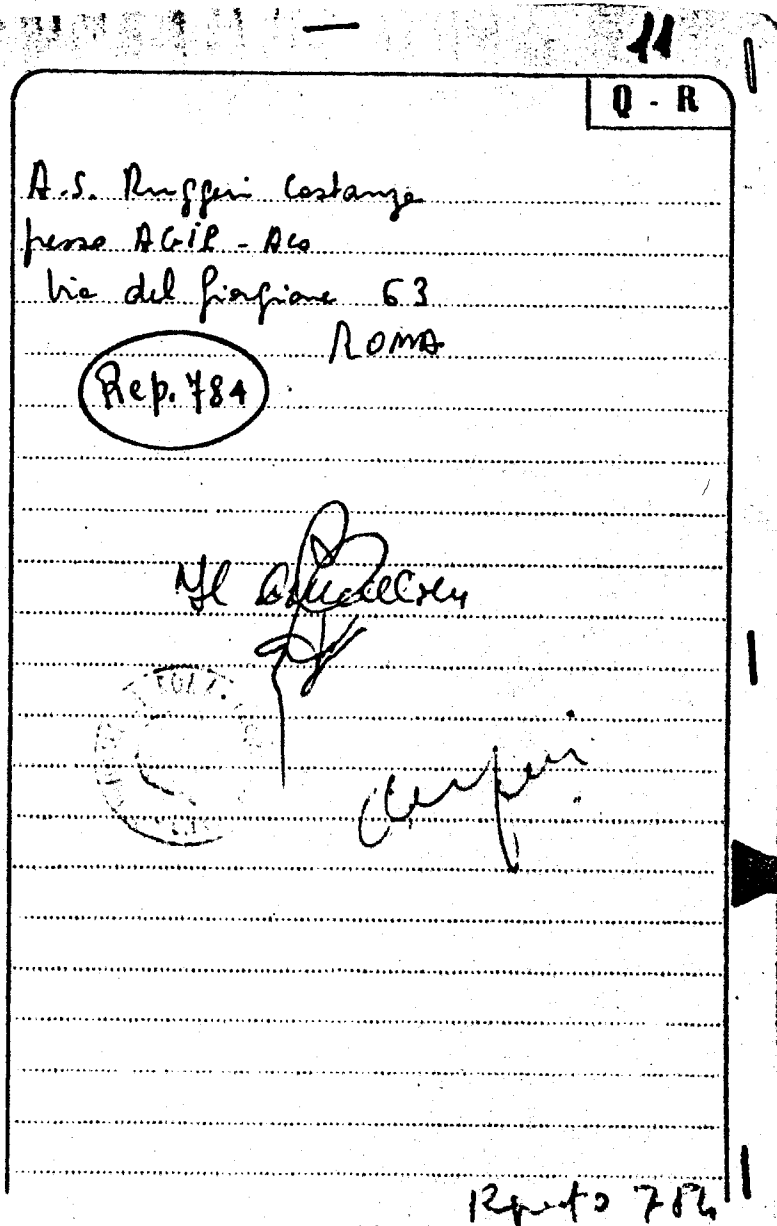 11
Q - R
A.S. Ruggeri Costanza
presso AGIP - Aco
Via del Giorgione 63
ROMA
Rep. 784
Il
Reperto 784